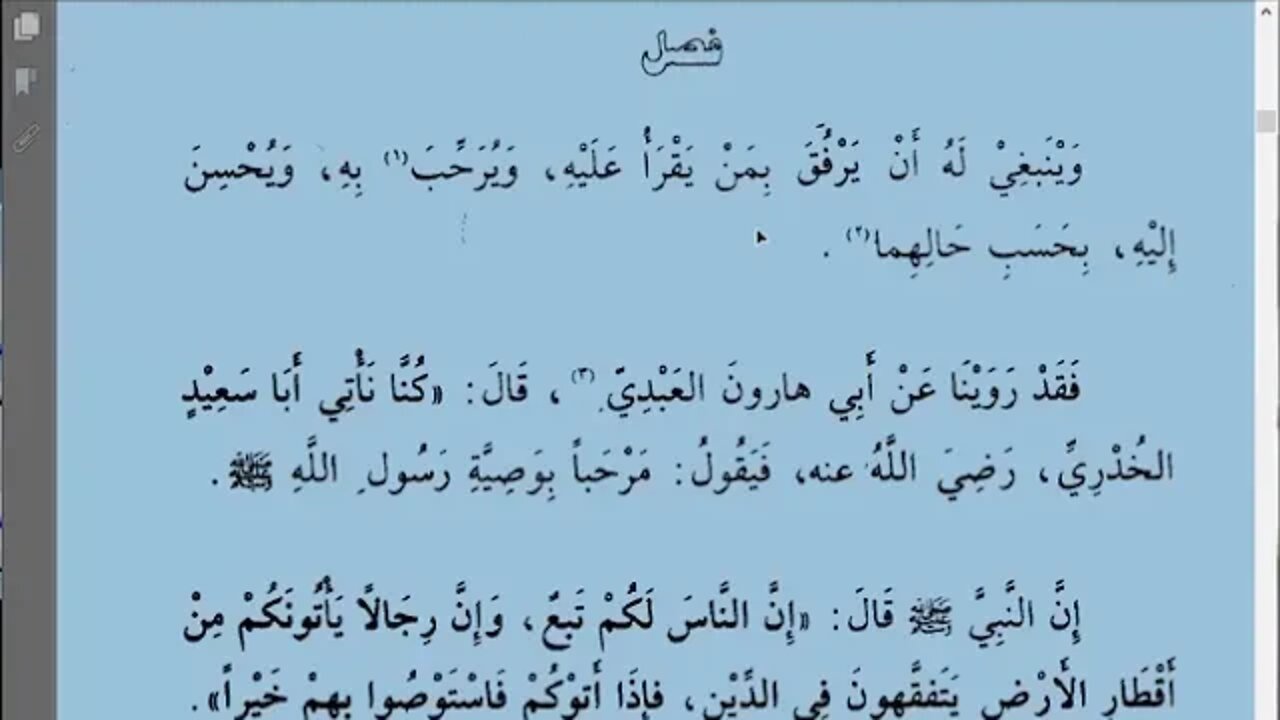 فصل
وَيَنْبَغِيْ لَهُ أَنْ يَرْفُقَ بِمَنْ يَقْرَأُ عَلَيْهِ، وَيُرَحِّبَ(١) بِهِ، وَيُحْسِنَ
إِلَيْهِ، بِحَسَبِ حَالِهِما(٢) .
فَقَدْ رَوَيْنَا عَنْ أَبِي هارونَ العَبْدِيِّ(٣)، قَالَ: «كُنَّا نَأْتِي أَبَا سَعِيْدٍ
الخُدْرِيَّ، رَضِيَ اللَّهُ عنه، فَيَقُولُ: مَرْحَباً بِوَصِيَّةِ رَسُولِ اللَّهِ ﷺ .
إِنَّ النَّبِيَّ ﷺ قَالَ: «إِنَّ النَّاسَ لَكُمْ تَبَعٌ، وَإِنَّ رِجَالاً يَأْتُونَكُمْ مِنْ
أَقْطَارِ الأَرْضِ يَتَفَقَّهونَ فِي الدِّيْنِ، فإِذَا أَتوْكُمْ فَاسْتَوْصُوا بِهِمْ خَيْراً».